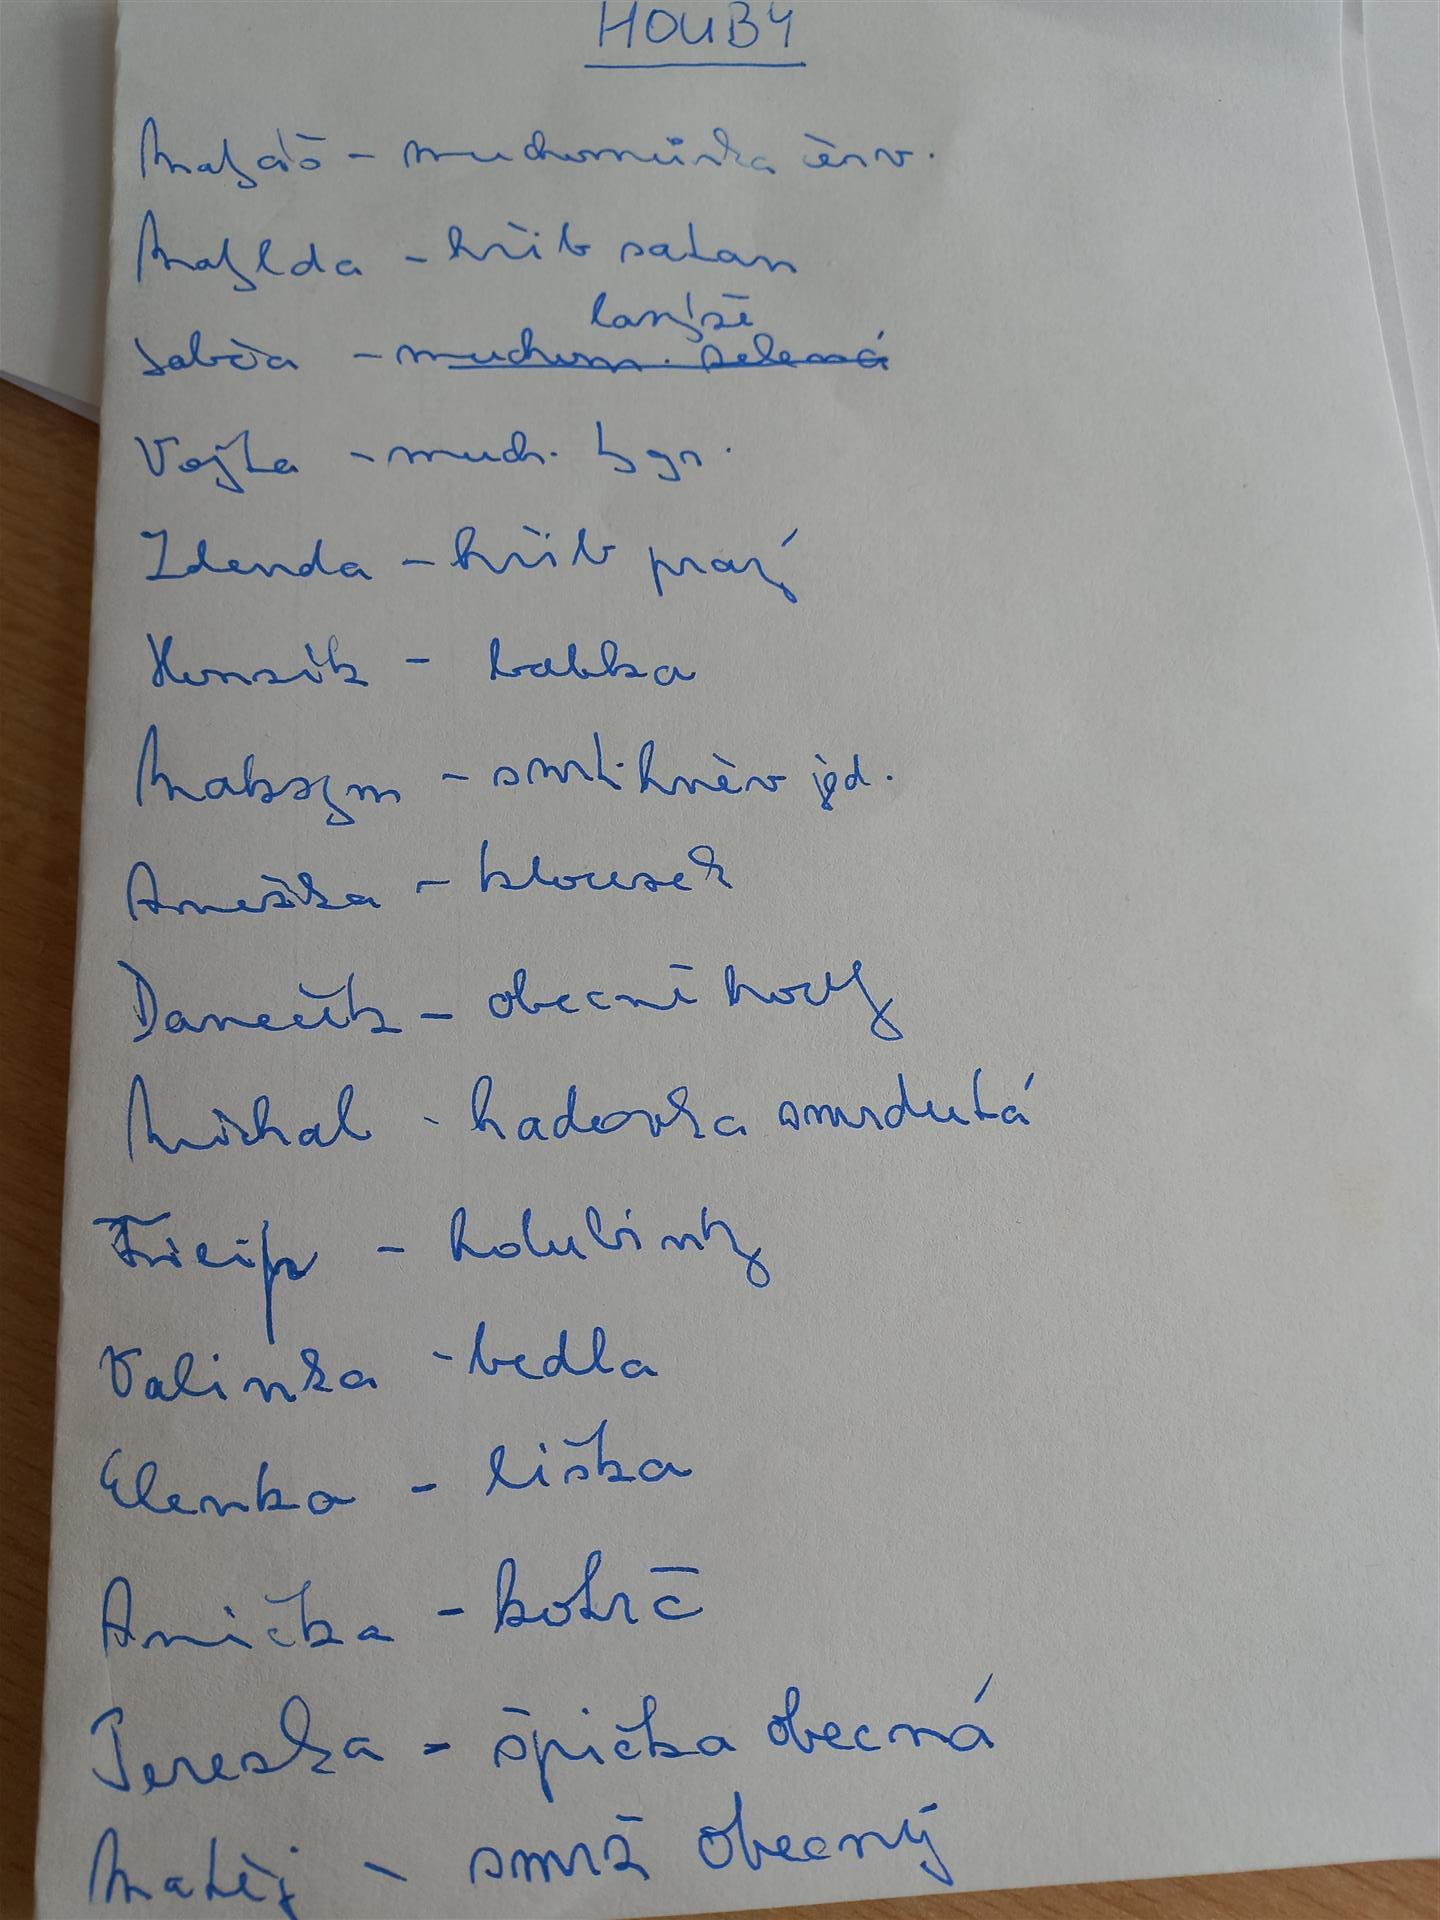 HOUBY
Matyáš - muchomůrka červ.
Matylda - hřib satan
lanýže
Sabča - muchom. zelená
Vojta - much. tygr.
Zdenda - hřib pravý
Honzík - babka
Maksym - smrt. hněv jed.
Anežka - klouzek
Daneček - obecné houby
Michal - hadovka smrdutá
Filip - holubinky
Valinka - bedla
Elenka - liška
Anička - kotrč
Terezka - špička obecná
Matěj - smrž obecný